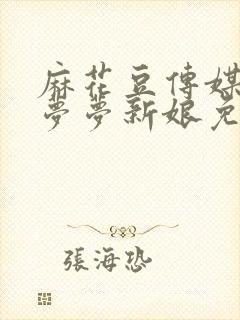 麻花豆傳媒
夢夢新娘免
張海恐